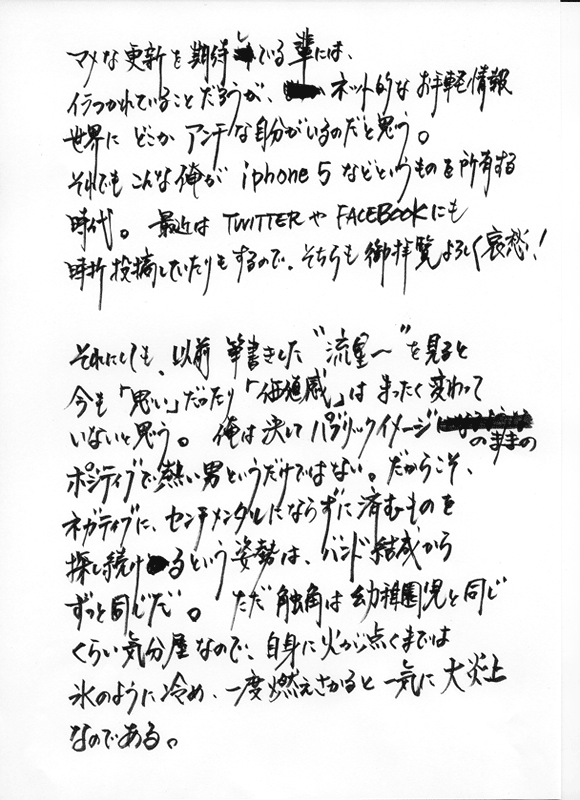 マメな更新を期待している輩には、
イラつかれていることだろうが、ネット的なお手軽情報
世界にどこかアンチな自分がいるのだと思う。
それでもこんな俺が iphone 5 などというものを所有する
時代。最近は TWITTERや FACEBOOKにも
時折投稿していたりもするので、そちらも御拝覧よろしく哀愁!
それにしても、以前筆書きした“流星〜”を見ると
今も「思い」だったり「価値感」はまったく変わって
いないと思う。俺は決してパブリックイメージのままの
ポジティブで熱い男というだけではない。だからこそ、
ネガティブに、センチメンタルにならずに済むものを
探し続けるという姿勢は、バンド結成から
ずっと同じだ。ただ触角は幼稚園児と同じ
くらい気分屋なので、自身に火が点くまでは
氷のように冷め、一度燃えさかると一気に大炎上
なのである。